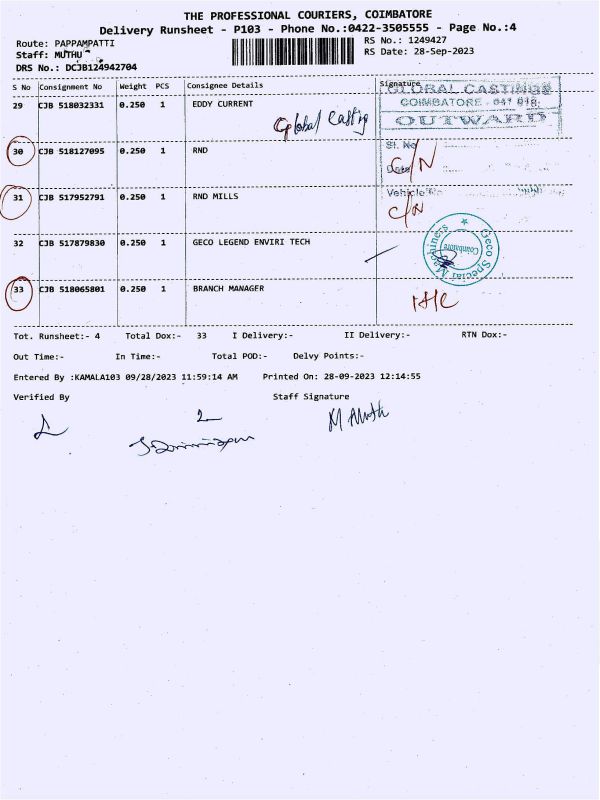 THE PROFESSIONAL COURIERS, COIMBATORE
Delivery Runsheet - P103 - Phone No.:0422-3505555 - Page No.:4
Route: PAPPAMPATTI
RS No.: 1249427
Staff: MUTHU
RS Date: 28-Sep-2023
DRS No.: DCJB124942704
S No Consignment No Weight PCS Consignee Details Signature
29 CJB 518032331 0.250 1 EDDY CURRENT
Global Casting
GLOBAL CASTINGS
COIMBATORE - 641 018.
OUTWARD
30 CJB 518127095 0.250 1 RND
Sl. No
Date
C/N
31 CJB 517952791 0.250 1 RND MILLS
Vehicle No.
C/N
32 CJB 517879830 0.250 1 GECO LEGEND ENVIRI TECH
Geco Special Machiners
Coimbatore
33 CJB 518065801 0.250 1 BRANCH MANAGER
Tot. Runsheet:- 4 Total Dox:- 33 I Delivery:- II Delivery:- RTN Dox:-
Out Time:- In Time:- Total POD:- Delvy Points:-
Entered By :KAMALA103 09/28/2023 11:59:14 AM Printed On: 28-09-2023 12:14:55
Verified By Staff Signature